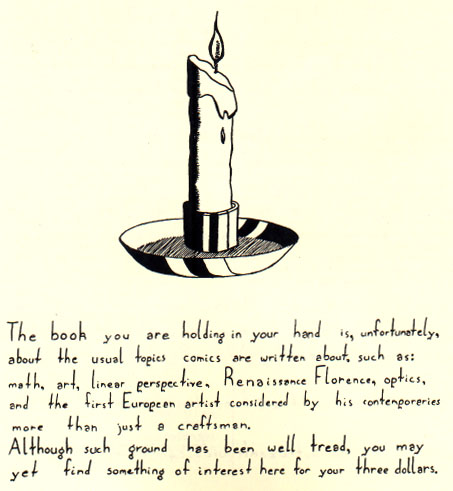 The book you are holding in your hand is, unfortunately,
about the usual topics comics are written about, such as:
math, art, linear perspective, Renaissance Florence, optics,
and the first European artist considered by his contemporaries
more than just a craftsman.
Although such ground has been well tread, you may
yet find something of interest here for your three dollars.